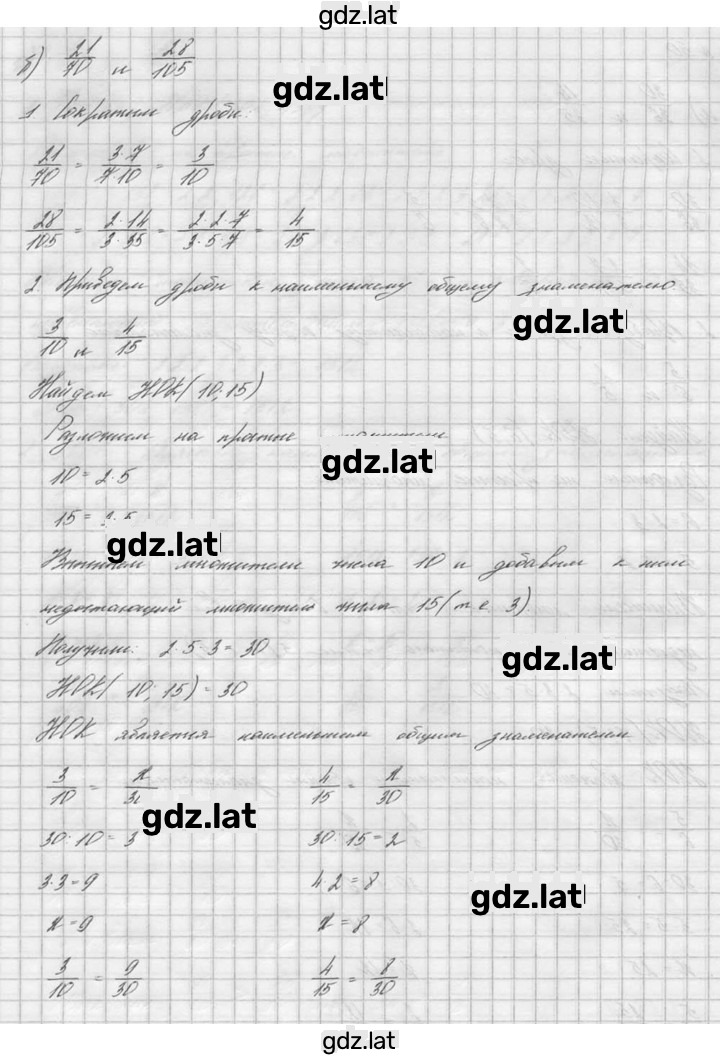 gdz.lat
б) 21/70 и 28/105
gdz.lat
1. Сократим дроби:
21/70 = 3·7/7·10 = 3/10
28/105 = 2·14/3·35 = 2·2·7/3·5·7 = 4/15
2. Приведем дроби к наименьшему общему знаменателю.
gdz.lat
3/10 и 4/15
Найдем НОК(10;15)
Разложим на простые множители
gdz.lat
10 = 2·5
15 = 3·5
gdz.lat
Выпишем множители числа 10 и добавим к ним
недостающий множитель числа 15 (т.е. 3).
Получили: 2·5·3 = 30
gdz.lat
НОК(10;15) = 30
НОК является наименьшим общим знаменателем
3/10 = x/30 4/15 = x/30
gdz.lat
30:10 = 3 30:15 = 2
3·3 = 9 4·2 = 8
gdz.lat
x = 9 x = 8
3/10 = 9/30 4/15 = 8/30
gdz.lat